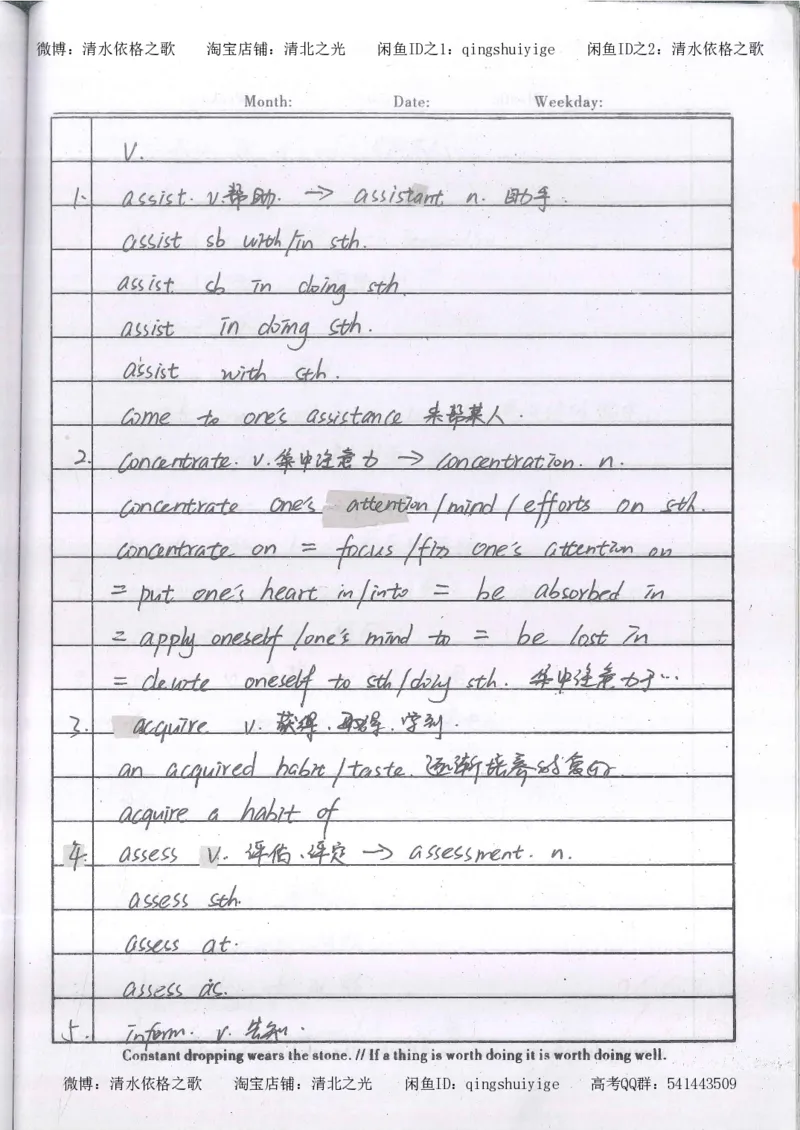 微博：清水依格之歌 淘宝店铺：清北之光 闲鱼ID之1：qingshuiyige 闲鱼ID之2：清水依格之歌
Month: Date: Weekday:
V.
1. assist. v.帮助. → assistant n. 助手.
assist sb with/in sth.
assist sb in doing sth.
assist in doing sth.
assist with sth.
come to one's assistance 来帮某人.
2. concentrate. v.集中注意力 → concentration. n.
concentrate one's attention/mind/efforts on sth.
concentrate on = focus/fix one's attention on
= put one's heart in/into = be absorbed in
= apply oneself/one's mind to = be lost in
= devote oneself to sth/doing sth. 集中注意力于…
3. acquire v. 获得、取得、学到.
an acquired habit/taste. 逐渐培养的
acquire a habit of
4. assess v. 评估、评定 → assessment. n.
assess sth.
assess at.
assess as.
5. inform. v. 告知.
Constant dropping wears the stone. // If a thing is worth doing it is worth doing well.
微博：清水依格之歌 淘宝店铺：清北之光 闲鱼ID：qingshuiyige 高考QQ群：541443509